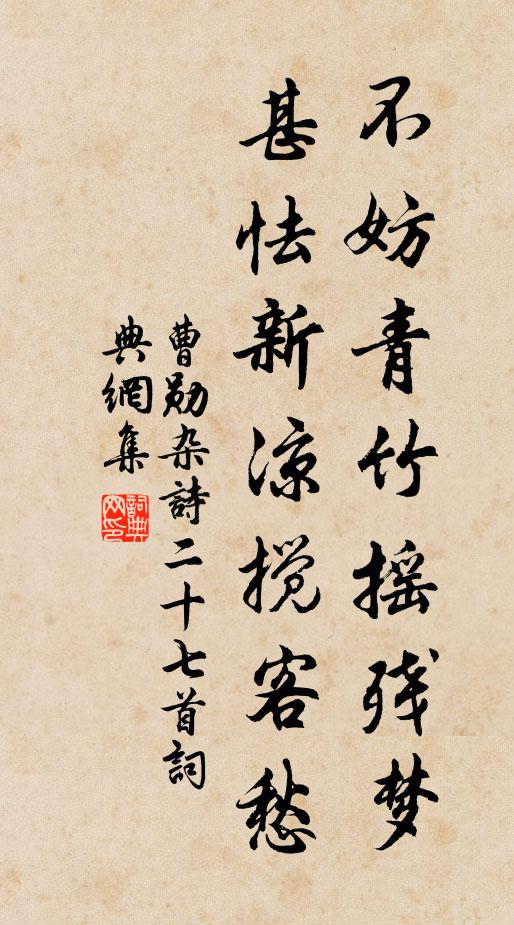 不妨青竹摇残梦
甚怯新凉搅客愁
曹勋杂詩二十七首詞
典網集
詞典网印